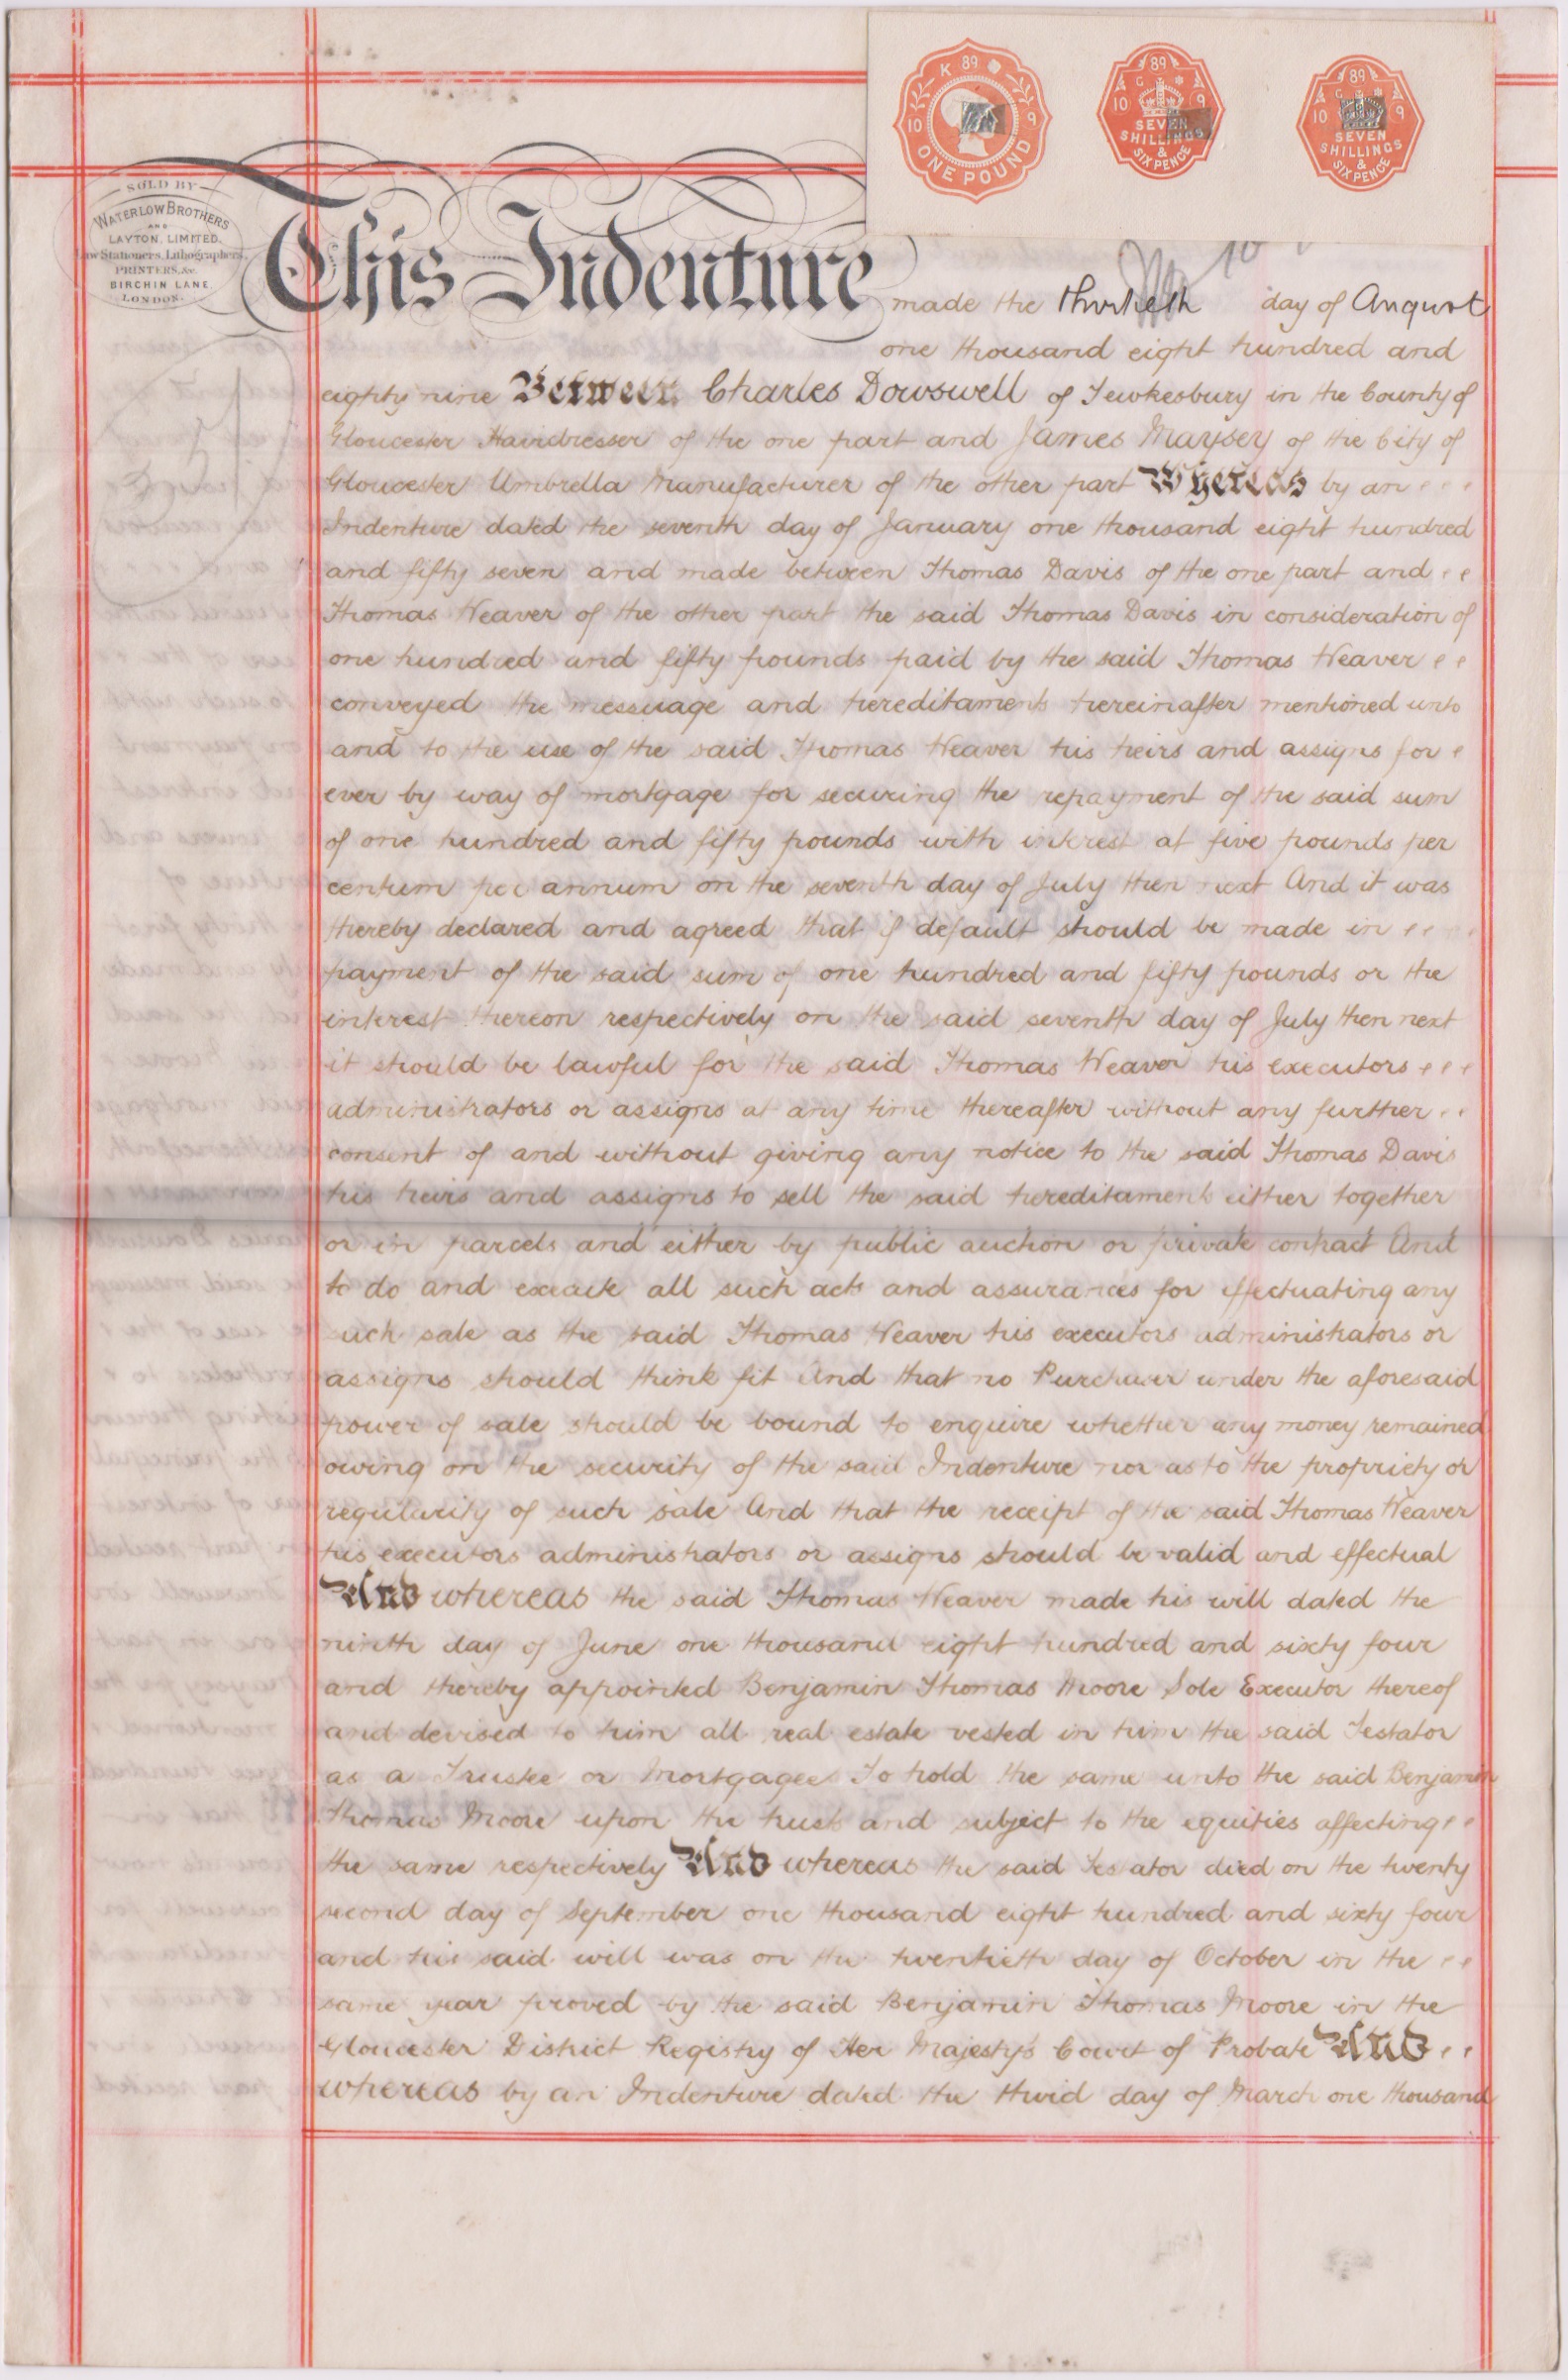 K 89
10 9
ONE POUND
89
10 9
SEVEN
SHILLINGS
&
SIX PENCE
89
10 9
SEVEN
SHILLINGS
&
SIX PENCE
SOLD BY
WATERLOW BROTHERS
AND
LAYTON, LIMITED,
Law Stationers, Lithographers,
PRINTERS, &c.
BIRCHIN LANE
LONDON.
This Indenture made the thirtieth day of August
one thousand eight hundred and
eighty nine Between Charles Dowswell of Tewkesbury in the County of
Gloucester Hairdresser of the one part and James Maysey of the City of
Gloucester Umbrella Manufacturer of the other part Whereas by an
Indenture dated the seventh day of January one thousand eight hundred
and fifty seven and made between Thomas Davis of the one part and
Thomas Weaver of the other part the said Thomas Davis in consideration of
one hundred and fifty pounds paid by the said Thomas Weaver
conveyed the messuage and hereditaments hereinafter mentioned unto
and to the use of the said Thomas Weaver his heirs and assigns for
ever by way of mortgage for securing the repayment of the said sum
of one hundred and fifty pounds with interest at five pounds per
centum per annum on the seventh day of July then next And it was
thereby declared and agreed that if default should be made in
payment of the said sum of one hundred and fifty pounds or the
interest thereon respectively on the said seventh day of July then next
it should be lawful for the said Thomas Weaver his executors
administrators or assigns at any time thereafter without any further
consent of and without giving any notice to the said Thomas Davis
his heirs and assigns to sell the said hereditaments either together
or in parcels and either by public auction or private contract And
to do and execute all such acts and assurances for effectuating any
such sale as the said Thomas Weaver his executors administrators or
assigns should think fit And that no Purchaser under the aforesaid
power of sale should be bound to enquire whether any money remained
owing on the security of the said Indenture nor as to the propriety or
regularity of such sale And that the receipt of the said Thomas Weaver
his executors administrators or assigns should be valid and effectual
And whereas the said Thomas Weaver made his will dated the
ninth day of June one thousand eight hundred and sixty four
and thereby appointed Benjamin Thomas Moore Sole Executor thereof
and devised to him all real estate vested in him the said Testator
as a Trustee or Mortgagee To hold the same unto the said Benjamin
Thomas Moore upon the trusts and subject to the equities affecting
the same respectively And whereas the said Testator died on the twenty
second day of September one thousand eight hundred and sixty four
and his said will was on the twentieth day of October in the
same year proved by the said Benjamin Thomas Moore in the
Gloucester District Registry of Her Majesty's Court of Probate And
whereas by an Indenture dated the third day of March one thousand